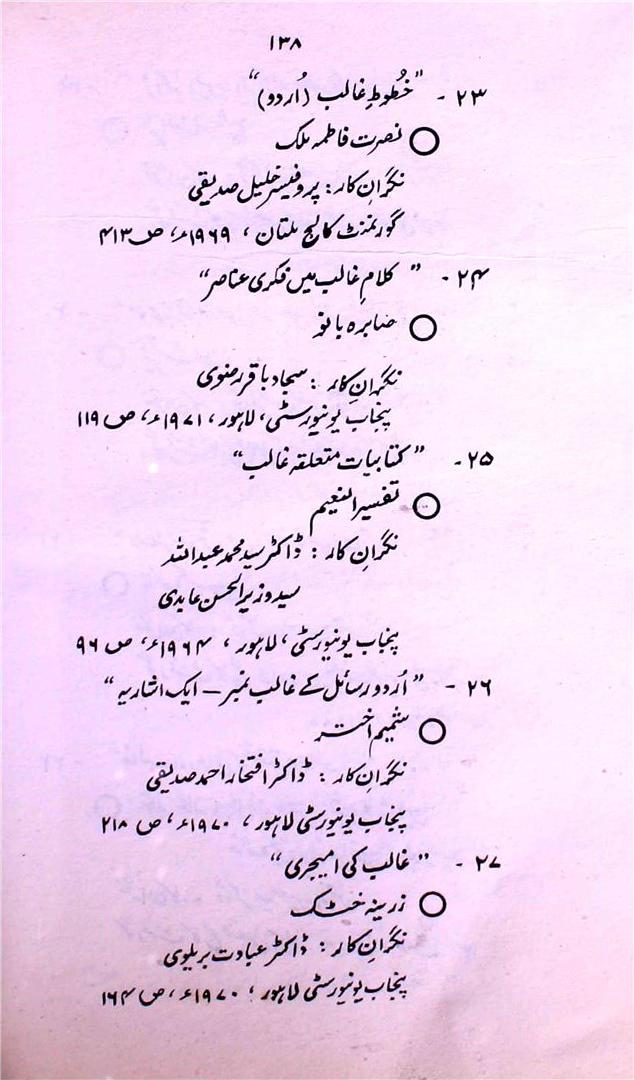 ۱۳۸
۲۳ - "خُطوطِ غالب (اُردو)"
نصرت فاطمہ ملک
نگرانِ کار: پروفیسر خلیل صدیقی
گورنمنٹ کالج ملتان ، ۱۹۶۹ء، ص ۴۱۳
۲۴ - "کلامِ غالب میں فکری عناصر"
صابرہ بانو
نگرانِ کار : سجاد باقر رضوی
پنجاب یونیورسٹی، لاہور ، ۱۹۷۱ء، ص ۱۱۹
۲۵ - "کتابیات متعلقہ غالب"
تفسیر النعیم
نگرانِ کار : ڈاکٹر سید محمد عبداللہ
سید وزیر الحسن عابدی
پنجاب یونیورسٹی، لاہور ، ۱۹۶۴ء، ص ۹۶
۲۶ - "اُردو رسائل کے غالب نمبر — ایک اشاریہ"
شمیم اختر
نگرانِ کار : ڈاکٹر افتخار احمد صدیقی
پنجاب یونیورسٹی لاہور ، ۱۹۷۰ء، ص ۲۱۸
۲۷ - "غالب کی امیجری"
زرینہ خٹک
نگرانِ کار : ڈاکٹر عبادت بریلوی
پنجاب یونیورسٹی لاہور ، ۱۹۷۰ء، ص ۱۶۴